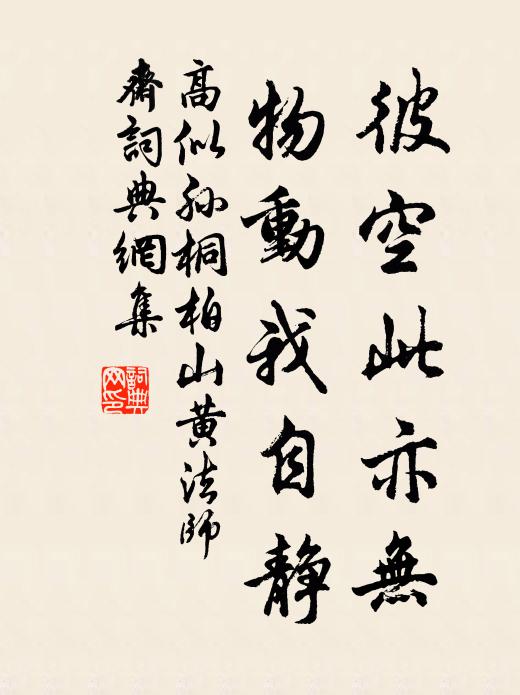 彼空此亦無
物動我自静
高似孫桐柏山黄法師
齋詞典網集
詞典
网印